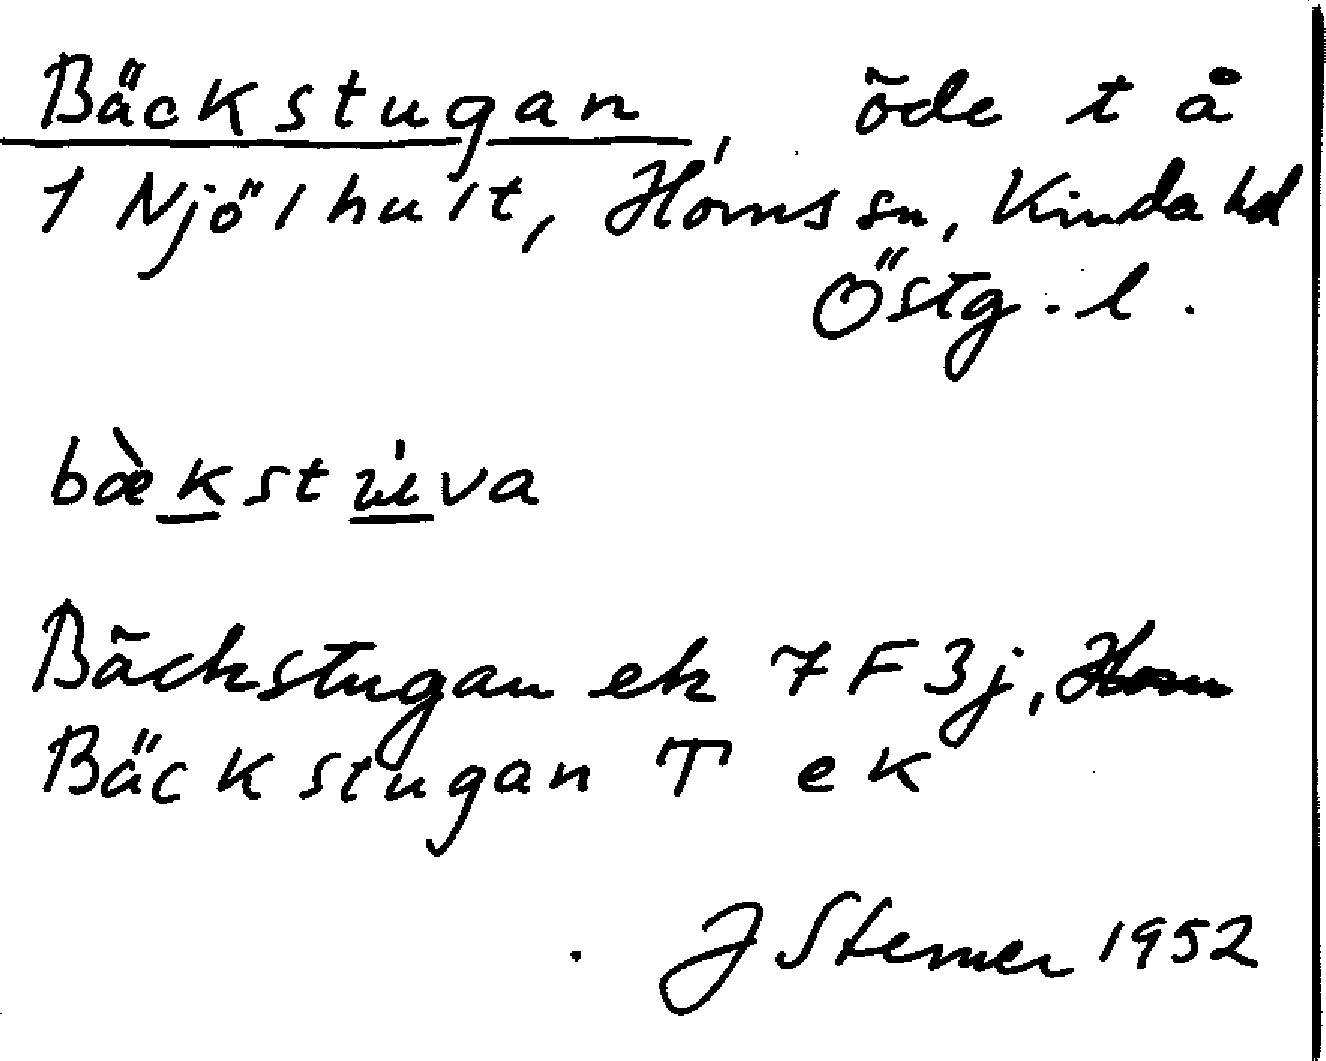 Bäckstugan, öde t å
1 Njölhult, Horns sn, Kinda hd
Östg. l.
bæ̀kstùva
Bäckstugan ek 7F3j, Horn
Bäckstugan T ek
J Sterner 1952